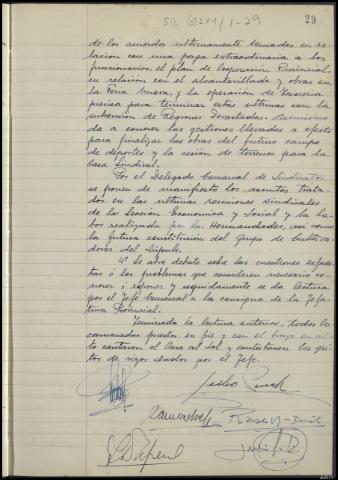 29
de los acuerdos ultimamente tomados en re-
lacion con una paga extraordinaria a los
funcionarios, el plan de Cooperacion Provincial,
en relacion con el alcantarillado y obras en
la Peña nueva, y la operación de Tesoreria
precisa para terminar estas ultimas con la
subvencion de Regiones Devastadas. Asimismo
da a conocer las gestiones llevadas a efecto
para finalizar las obras del futuro campo
de deportes y la cesión de terrenos para la
Casa Sindical.
Por el Delegado Comarcal de Sindicatos
se ponen de manifiesto los asuntos trata-
dos en las ultimas reuniones sindicales
de la Seccion Economica y Social y la la-
bor realizada por las Hermandades, asi como
la futura constitución del Grupo de Cultiva-
dores del Lúpulo.
4º Se abre debate sobre las cuestiones
ó los problemas que consideren necesario
ó exponer y seguidamente se da lectura
por el Jefe Comarcal a la consigna de la Jefa-
tura Provincial.
Terminada la lectura anterior, todos los
camaradas puestos en pié y con el brazo en al-
to cantaron el Cara al Sol y contestaron los gri-
tos de rigor dados por el Jefe.